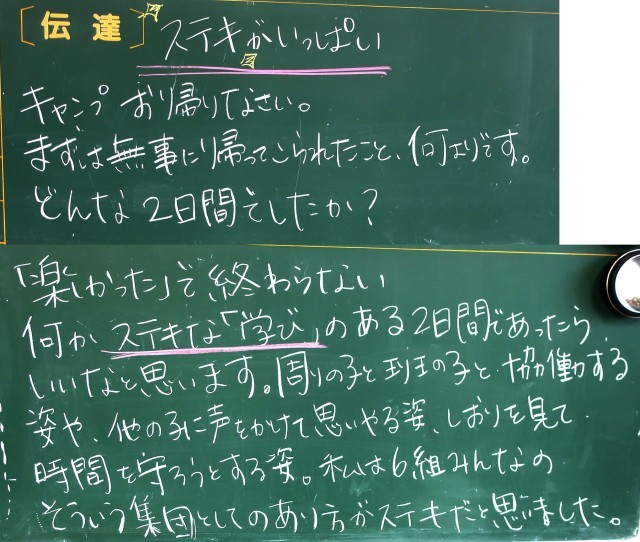 〔伝達〕ステキがいっぱい
キャンプ お帰りなさい。
まずは無事に帰ってこられたこと、何よりです。
どんな2日間でしたか?
「楽しかった」で終わらない
何かステキな「学び」のある2日間であったら
いいなと思います。周りの子と班の子と協働する
姿や、他の子に声をかけて思いやる姿、しおりを見て
時間を守ろうとする姿。私は6組みんなの
そういう集団としてのあり方がステキだと思いました。